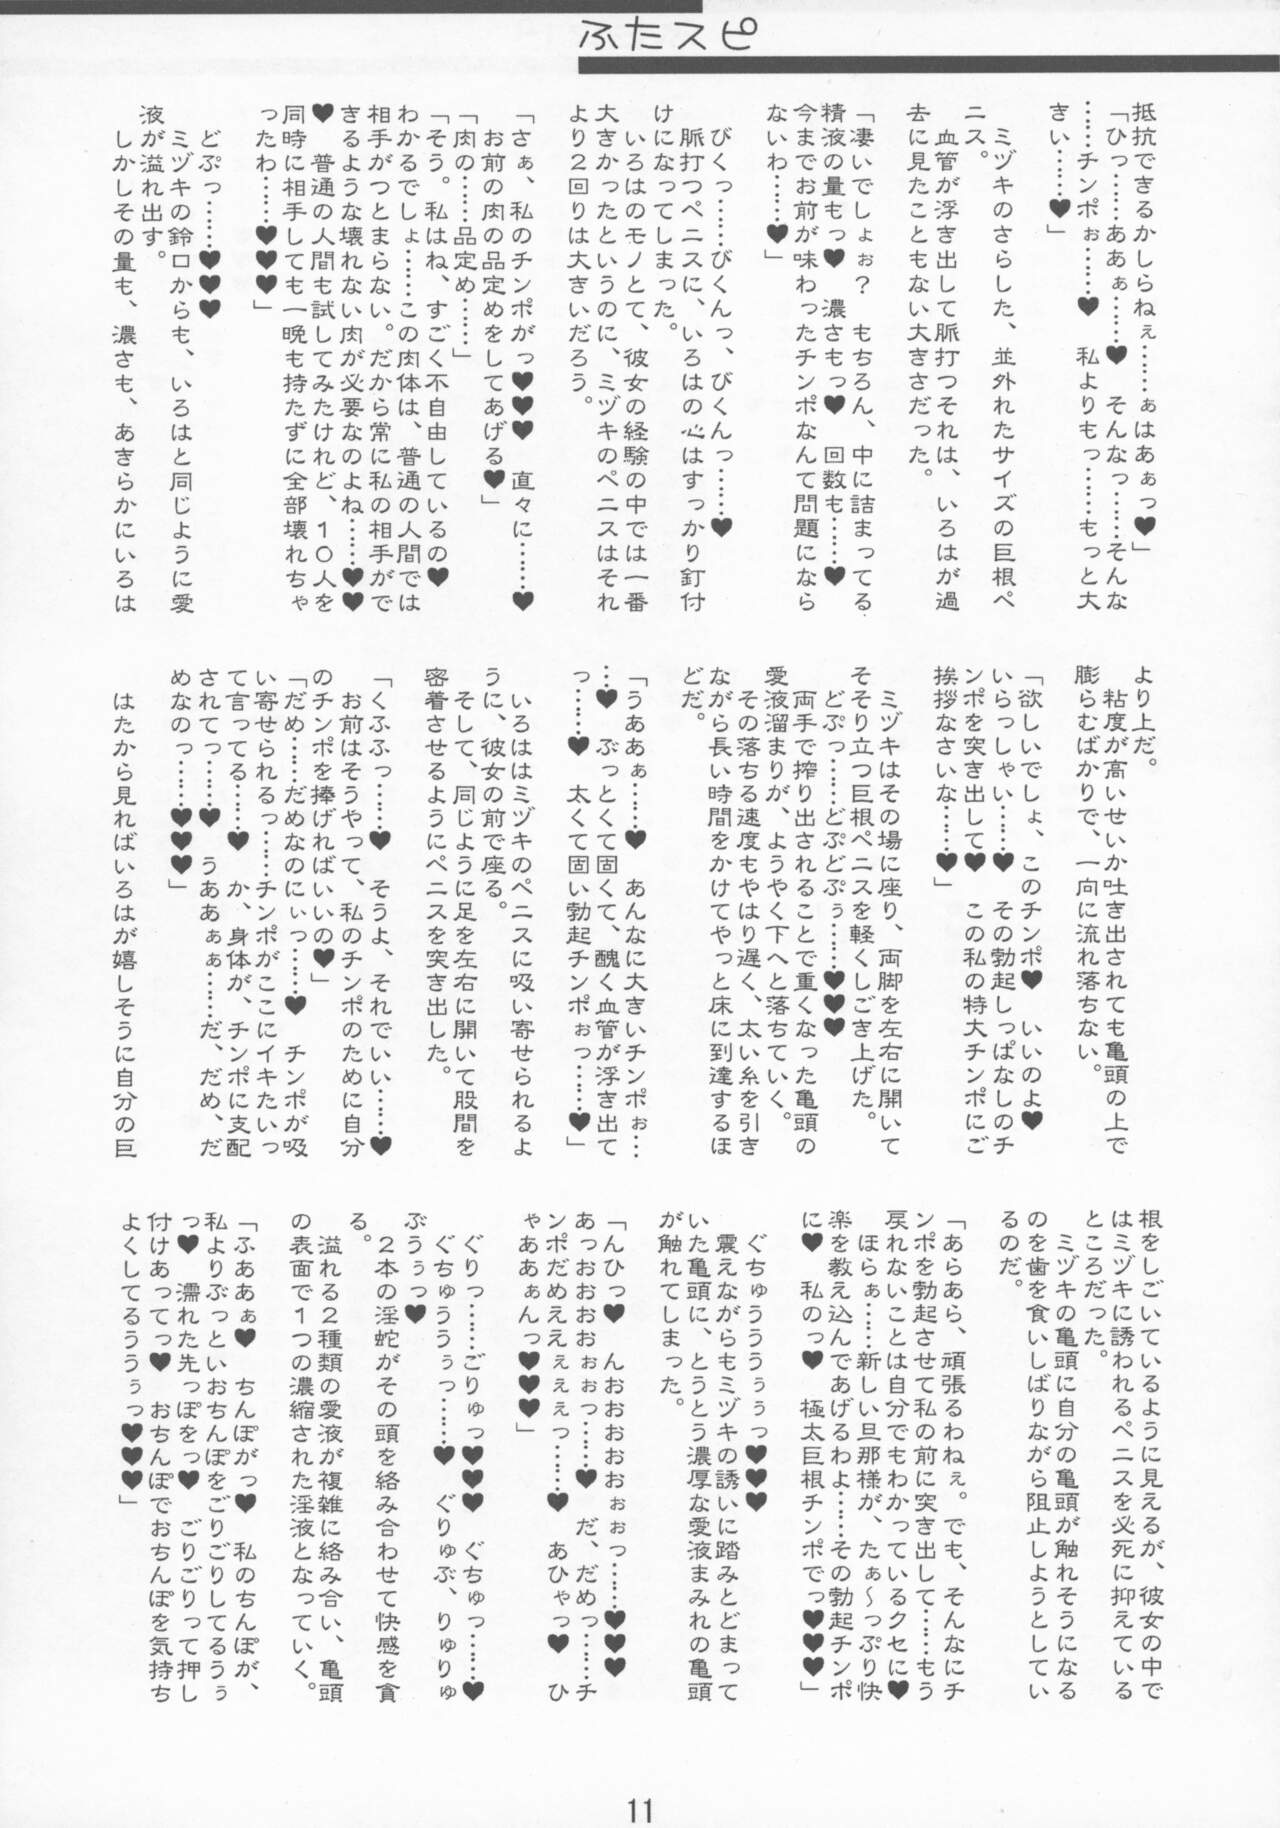 ふたスピ
抵抗できるかしらねぇ……ぁはあぁっ♥」
「ひっ……ああぁ……♥　そんなっ……そんな
……チンポぉ……♥　私よりもっ……もっと大
きぃ……♥」
ミヅキのさらした、並外れたサイズの巨根ペ
ニス。
血管が浮き出して脈打つそれは、いろはが過
去に見たこともない大きさだった。
「凄いでしょぉ？　もちろん、中に詰まってる
精液の量もっ♥　濃さもっ♥　回数も……♥
今までお前が味わったチンポなんて問題になら
ないわ……♥」
びくっ……びくんっ、びくんっ……♥
脈打つペニスに、いろはの心はすっかり釘付
けになってしまった。
いろはのモノとて、彼女の経験の中では一番
大きかったというのに、ミヅキのペニスはそれ
より２回りは大きいだろう。
「さぁ、私のチンポがっ♥♥♥　直々に……♥
お前の肉の品定めをしてあげる♥」
「肉の……品定め……」
「そう。私はね、すごく不自由しているの♥
わかるでしょ……この肉体は、普通の人間では
相手がつとまらない。だから常に私の相手がで
きるような壊れない肉が必要なのよね……♥♥
♥　普通の人間も試してみたけれど、１０人を
同時に相手しても一晩も持たずに全部壊れちゃ
ったわ……♥♥♥」
どぷっ……♥♥♥
ミヅキの鈴口からも、いろはと同じように愛
液が溢れ出す。
しかしその量も、濃さも、あきらかにいろは
より上だ。
粘度が高いせいか吐き出されても亀頭の上で
膨らむばかりで、一向に流れ落ちない。
「欲しいでしょ、このチンポ♥　いいのよ♥
いらっしゃい……♥　その勃起しっぱなしのチ
ンポを突き出して♥　この私の特大チンポにご
挨拶なさいな……♥」
ミヅキはその場に座り、両脚を左右に開いて
そそり立つ巨根ペニスを軽くしごき上げた。
どぷっ……どぷどぷぅ……♥♥♥
両手で搾り出されることで重くなった亀頭の
愛液溜まりが、ようやく下へと落ちていく。
その落ちる速度もやはり遅く、太い糸を引き
ながら長い時間をかけてやっと床に到達するほ
どだ。
「うああぁ……♥　あんなに大きいチンポぉ…
…♥　ぶっとくて固くて、醜く血管が浮き出て
っ……♥　太くて固い勃起チンポぉっ……♥」
いろははミヅキのペニスに吸い寄せられるよ
うに、彼女の前で座る。
そして、同じように足を左右に開いて股間を
密着させるようにペニスを突き出した。
「くふふっ……♥　そうよ、それでいい……♥
お前はそうやって、私のチンポのために自分
のチンポを捧げればいいの♥」
「だめ……だめなのにぃっ……♥　チンポが吸
い寄せられるっ……チンポがここにイキたいっ
て言ってる……♥　か、身体が、チンポに支配
されてっ……♥　うああぁぁ……だ、だめ、だ
めなのっ……♥♥♥」
はたから見ればいろはが嬉しそうに自分の巨
根をしごいているように見えるが、彼女の中で
はミヅキに誘われるペニスを必死に抑えている
ところだった。
ミヅキの亀頭に自分の亀頭が触れそうになる
のを歯を食いしばりながら阻止しようとしてい
るのだ。
「あらあら、頑張るわねぇ。でも、そんなにチ
ンポを勃起させて私の前に突き出して……もう
戻れないことは自分でもわかっているクセに♥
ほらぁ……新しい旦那様が、たぁ～っぷり快
楽を教え込んであげるわよ……その勃起チンポ
に♥　私のっ♥　極太巨根チンポでっ♥♥♥」
ぐちゅうううぅぅっ♥♥♥
震えながらもミヅキの誘いに踏みとどまって
いた亀頭に、とうとう濃厚な愛液まみれの亀頭
が触れてしまった。
「んひっ♥　んおおおおおぉぉっ……♥♥♥
あっおおおおぉぉっ……♥　だ、だめっ……チ
ンポだめええぇぇぇっ……♥　あひゃっ♥　ひ
ゃああぁぁんっ♥♥♥」
ぐりっ……ごりゅっ♥♥♥　ぐちゅっ……♥
ぐちゅううぅっ……♥　ぐりゅぶ、りゅりゅ
ぶうぅっ♥
２本の淫蛇がその頭を絡み合わせて快感を貪
る。
溢れる２種類の愛液が複雑に絡み合い、亀頭
の表面で１つの濃縮された淫液となっていく。
「ふああぁぁ♥　ちんぽがっ♥　私のちんぽが、
私よりぶっといおちんぽをごりごりしてるうぅ
っ♥　濡れた先っぽをっ♥　ごりごりって押し
付けあってっ♥　おちんぽでおちんぽを気持ち
よくしてるううぅっ♥♥♥」
11